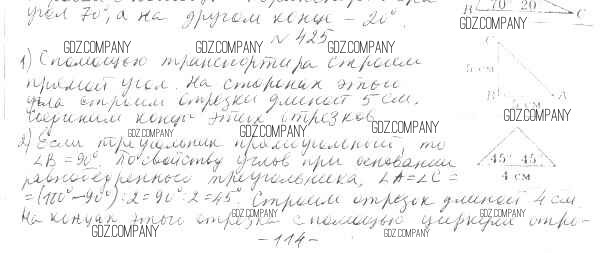 угол 70°, а на другом конце – 20°.
В 70° 20° С
№ 425
1) С помощью транспортира строим
прямой угол. На сторонах этого
угла строим отрезки длиной 5 см.
Соединим концы этих отрезков
С
5 см
В
А
5 см
2) Если треугольник прямоугольный, то
∠В = 90°. По свойству углов при основании
равнобедренного треугольника, ∠А = ∠С =
= (180° – 90°) : 2 = 90° : 2 = 45°. Строим отрезок длиной 4 см.
На концах этого отрезка с помощью циркуля отро-
45° 45°
4 см
– 114 –
GDZ.COMPANY
GDZ.COMPANY
GDZ.COMPANY
GDZ.COMPANY
GDZ.COMPANY
GDZ.COMPANY
GDZ.COMPANY
GDZ.COMPANY
GDZ.COMPANY
GDZ.COMPANY
GDZ.COMPANY
GDZ.COMPANY
GDZ.COMPANY